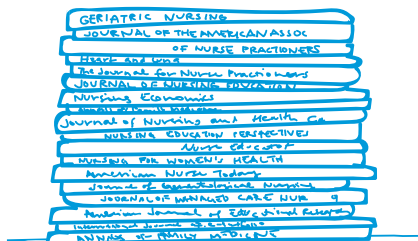 GERIATRIC NURSING
JOURNAL OF THE AMERICAN ASSOC
OF NURSE PRACTIONERS
Heart and Lung
The Journal for Nurse Practioners
JOURNAL OF NURSING EDUCATION
Nursing Economics
Annals of Family Medicine
Journal of Nursing and Health Ca
NURSING EDUCATION PERSPECTIVES
Nurse Educator
NURSING FOR WOMEN'S HEALTH
American Nurse Today
Journal of Gerontological Nursing
JOURNAL OF MANAGED CARE NUR 9
American Journal of Educational Research
International Journal of
ANNALS OF FAMILY MEDICINE